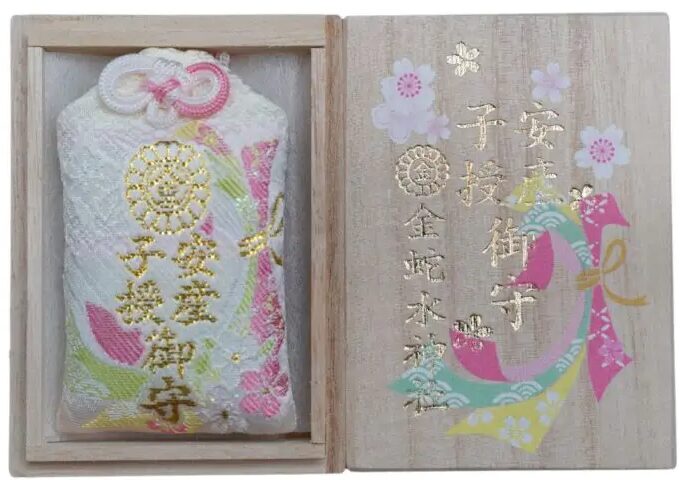 金
安産
子授
御守
安産
子授
御守
金
金蛇水神社